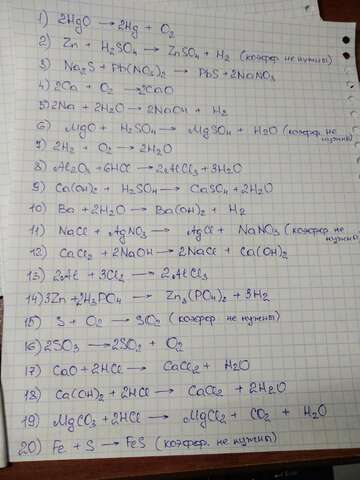 1) 2HgO → 2Hg + O₂
2) Zn + H₂SO₄ → ZnSO₄ + H₂ (коэфер. не нужны)
3) Na₂S + Pb(NO₃)₂ → PbS + 2NaNO₃
4) 2Ca + O₂ → 2CaO
5) 2Na + 2H₂O → 2NaOH + H₂
6) MgO + H₂SO₄ → MgSO₄ + H₂O (коэфер. не нужны)
7) 2H₂ + O₂ → 2H₂O
8) Al₂O₃ + 6HCl → 2AlCl₃ + 3H₂O
9) Ca(OH)₂ + H₂SO₄ → CaSO₄ + 2H₂O
10) Ba + 2H₂O → Ba(OH)₂ + H₂
11) NaCl + AgNO₃ → AgCl + NaNO₃ (коэфер. не нужны)
12) CaCl₂ + 2NaOH → 2NaCl + Ca(OH)₂
13) 2Al + 3Cl₂ → 2AlCl₃
14) 3Zn + 2H₃PO₄ → Zn₃(PO₄)₂ + 3H₂
15) S + O₂ → SO₂ (коэфер. не нужны)
16) 2SO₃ → 2SO₂ + O₂
17) CaO + 2HCl → CaCl₂ + H₂O
18) Ca(OH)₂ + 2HCl → CaCl₂ + 2H₂O
19) MgCO₃ + 2HCl → MgCl₂ + CO₂ + H₂O
20) Fe + S → FeS (коэфер. не нужны)